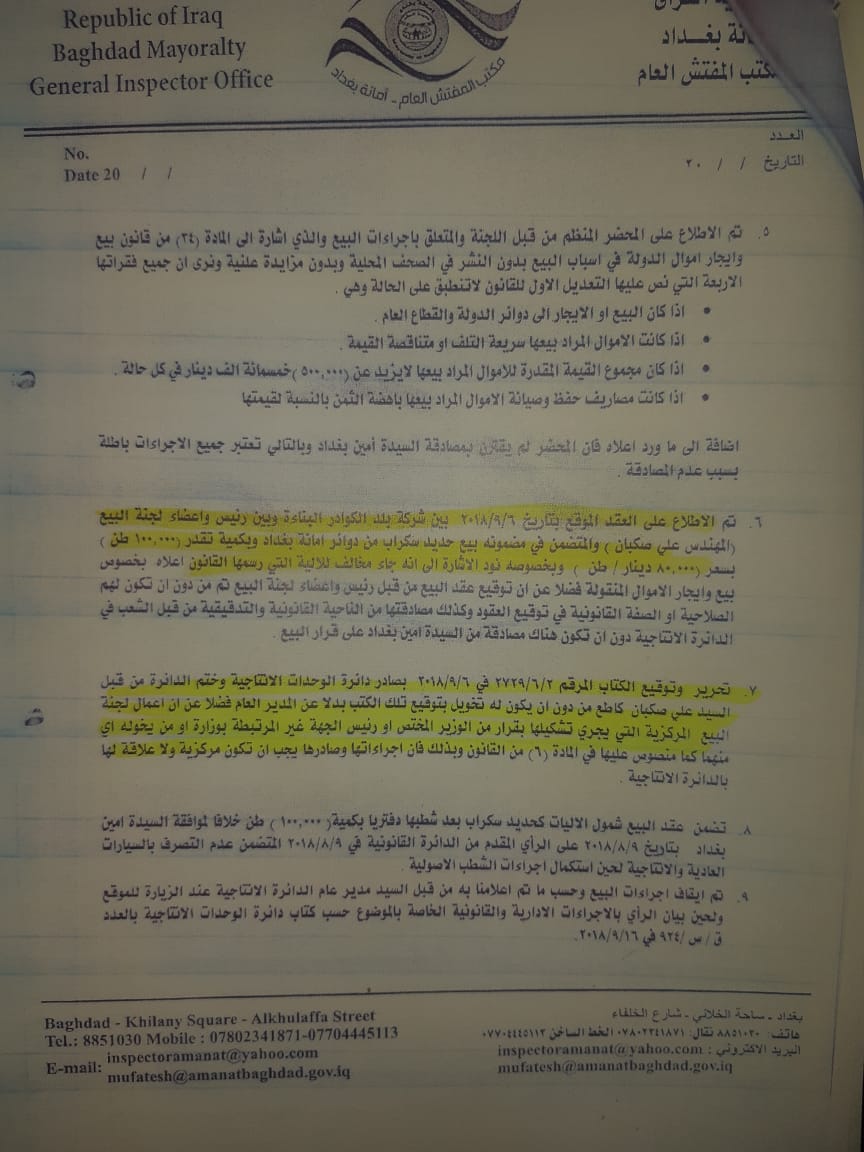 Republic of Iraq
Baghdad Mayoralty
General Inspector Office
مكتب المفتش العام - أمانة بغداد
انة بغداد
كتب المفتش العام
No.
Date 20 / /
العدد
التاريخ / / ٢٠
٥. تم الاطلاع على المحضر المنظم من قبل اللجنة والمتعلق باجراءات البيع والذي اشارة الى المادة (٣٤) من قانون بيع
وايجار اموال الدولة في اسباب البيع بدون النشر في الصحف المحلية وبدون مزايدة علنية ونرى ان جميع فقراتها
الاربعة التي نص عليها التعديل الاول للقانون لاتنطبق على الحالة وهي .
• اذا كان البيع او الايجار الى دوائر الدولة والقطاع العام .
• اذا كانت الاموال المراد بيعها سريعة التلف او متناقصة القيمة .
• اذا كان مجموع القيمة المقدرة للاموال المراد بيعها لايزيد عن (٥٠٠,٠٠٠) خمسمائة الف دينار في كل حالة .
• اذا كانت مصاريف حفظ وصيانة الاموال المراد بيعها باهضة الثمن بالنسبة لقيمتها
اضافة الى ما ورد اعلاه فان المحضر لم يقترن بمصادقة السيدة أمين بغداد وبالتالي تعتبر جميع الاجراءات باطلة
بسبب عدم المصادقة .
٦. تم الاطلاع على العقد الموقع بتاريخ ٢٠١٨/٩/٦ بين شركة بلد الكوادر البناءة وبين رئيس واعضاء لجنة البيع
(المهندس علي صكبان ) والمتضمن في مضمونه بيع حديد سكراب من دوائر امانة بغداد وبكمية تقدر (١٠٠,٠٠٠ طن )
بسعر (٨٠,٠٠٠ دينار / طن ) وبخصوصه نود الاشارة الى انه جاء مخالف للالية التي رسمها القانون اعلاه بخصوص
بيع وايجار الاموال المنقولة فضلا عن ان توقيع عقد البيع من قبل رئيس واعضاء لجنة البيع تم من دون ان تكون لهم
الصلاحية او الصفة القانونية في توقيع العقود وكذلك مصادقتها من الناحية القانونية والتدقيقية من قبل الشعب في
الدائرة الانتاجية دون ان تكون هناك مصادقة من السيدة امين بغداد على قرار البيع .
٧. تحرير وتوقيع الكتاب المرقم ٢٧٢٩/٦/٢ في ٢٠١٨/٩/٦ بصادر دائرة الوحدات الانتاجية وختم الدائرة من قبل
السيد علي صكبان كاطع من دون ان يكون له تخويل بتوقيع تلك الكتب بدلا عن المدير العام فضلا عن ان اعمال لجنة
البيع المركزية التي يجري تشكيلها بقرار من الوزير المختص او رئيس الجهة غير المرتبطة بوزارة او من يخوله اي
منهما كما منصوص عليها في المادة (٦) من القانون وبذلك فان اجراءاتها وصادرها يجب ان تكون مركزية ولا علاقة لها
بالدائرة الانتاجية .
٨. تضمن عقد البيع شمول الاليات كحديد سكراب بعد شطبها دفتريا بكمية( ١٠٠,٠٠٠ ) طن خلافا لموافقة السيدة امين
بغداد بتاريخ ٢٠١٨/٨/٩ على الرأي المقدم من الدائرة القانونية في ٢٠١٨/٨/٩ المتضمن عدم التصرف بالسيارات
العادية والانتاجية لحين استكمال اجراءات الشطب الاصولية .
٩. تم ايقاف اجراءات البيع وحسب ما تم اعلامنا به من قبل السيد مدير عام الدائرة الانتاجية عند الزيارة للموقع
ولحين بيان الرأي بالاجراءات الادارية والقانونية الخاصة بالموضوع حسب كتاب دائرة الوحدات الانتاجية بالعدد
ق / س /٩٢٤ في ٢٠١٨/٩/١٦.
Baghdad - Khilany Square - Alkhulaffa Street
Tel.: 8851030 Mobile : 07802341871-07704445113
E-mail: inspectoramanat@yahoo.com
mufatesh@amanatbaghdad.gov.iq
بغداد - ساحة الخلاني - شارع الخلفاء
هاتف: ٨٨٥١٠٣٠ نقال: ٠٧٨٠٢٣٤١٨٧١ الخط الساخن ٠٧٧٠٤٤٤٥١١٣
البريد الالكتروني : inspectoramanat@yahoo.com
mufatesh@amanatbaghdad.gov.iq